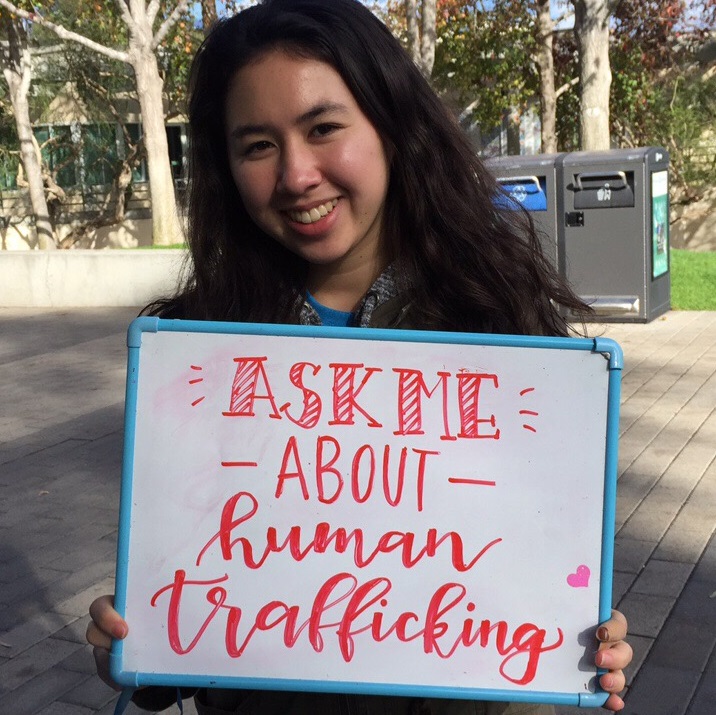 ASK ME
- ABOUT -
human
trafficking